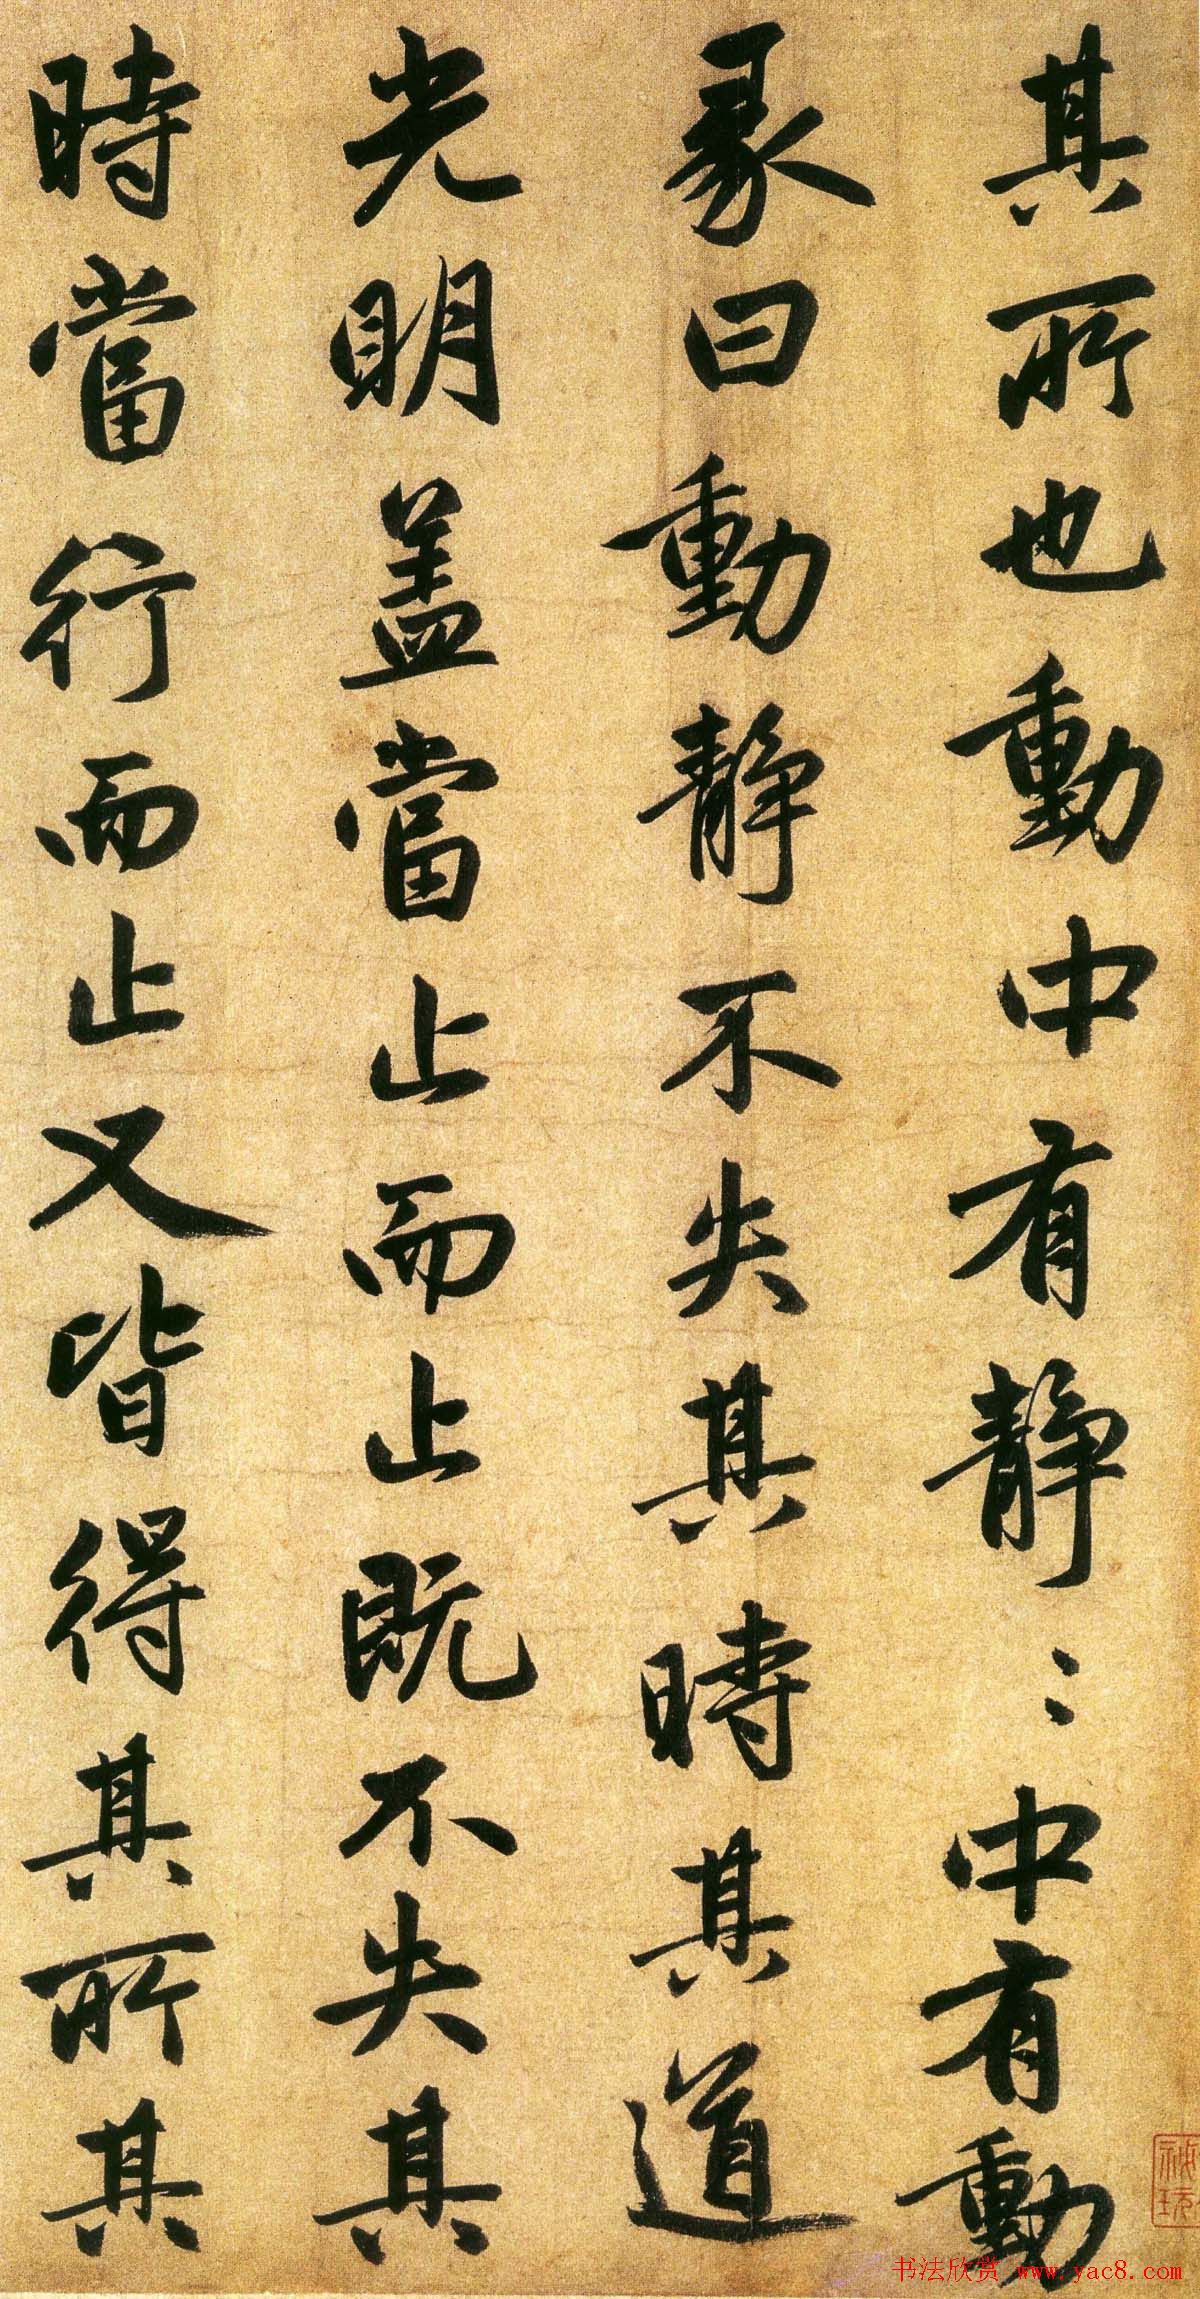 其所也動中有靜〻中有動
彖曰動靜不失其時其道
光明盖當止而止既不失其
時當行而止又皆得其所其
祕玩
书法欣赏 www.yac8.com